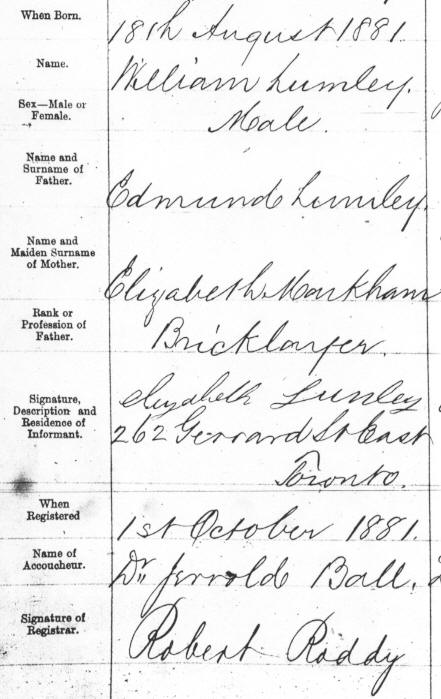 When Born.
18th August 1881.
Name.
William Lumley.
Sex—Male or
Female.
Male.
Name and
Surname of
Father.
Edmund Lumley.
Name and
Maiden Surname
of Mother.
Elizabeth Markham
Rank or
Profession of
Father.
Bricklayer.
Signature,
Description and
Residence of
Informant.
Elizabeth Lumley
262 Gerrard St East
Toronto.
When
Registered
1st October 1881.
Name of
Accoucheur.
Dr. Jerrold Ball.
Signature of
Registrar.
Robert Roddy